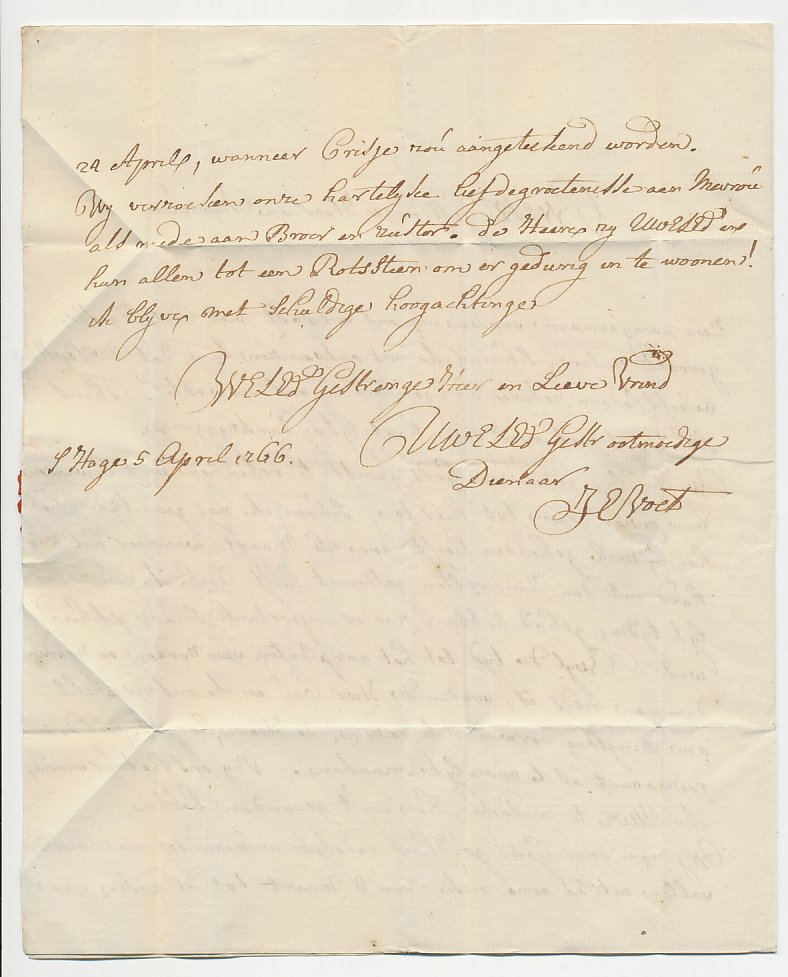 24 April, wanneer Crisje zoú aangeteekend worden.
Wy verzoeken onze hartelyke liefdegroetenisse aan Mevroú
als mede aan Broer en zúster. de Heere zy UWELEd en
hun allen tot een Rotssteen om er gedurig in te woonen!
ik blyve met schuldige hoogachtinge
WELEd Gestrenge Heer en Lieve Vrind
UWELEd Gestr ootmoedige
S Hage 5 April 1766.
Dienaar
J E Voet